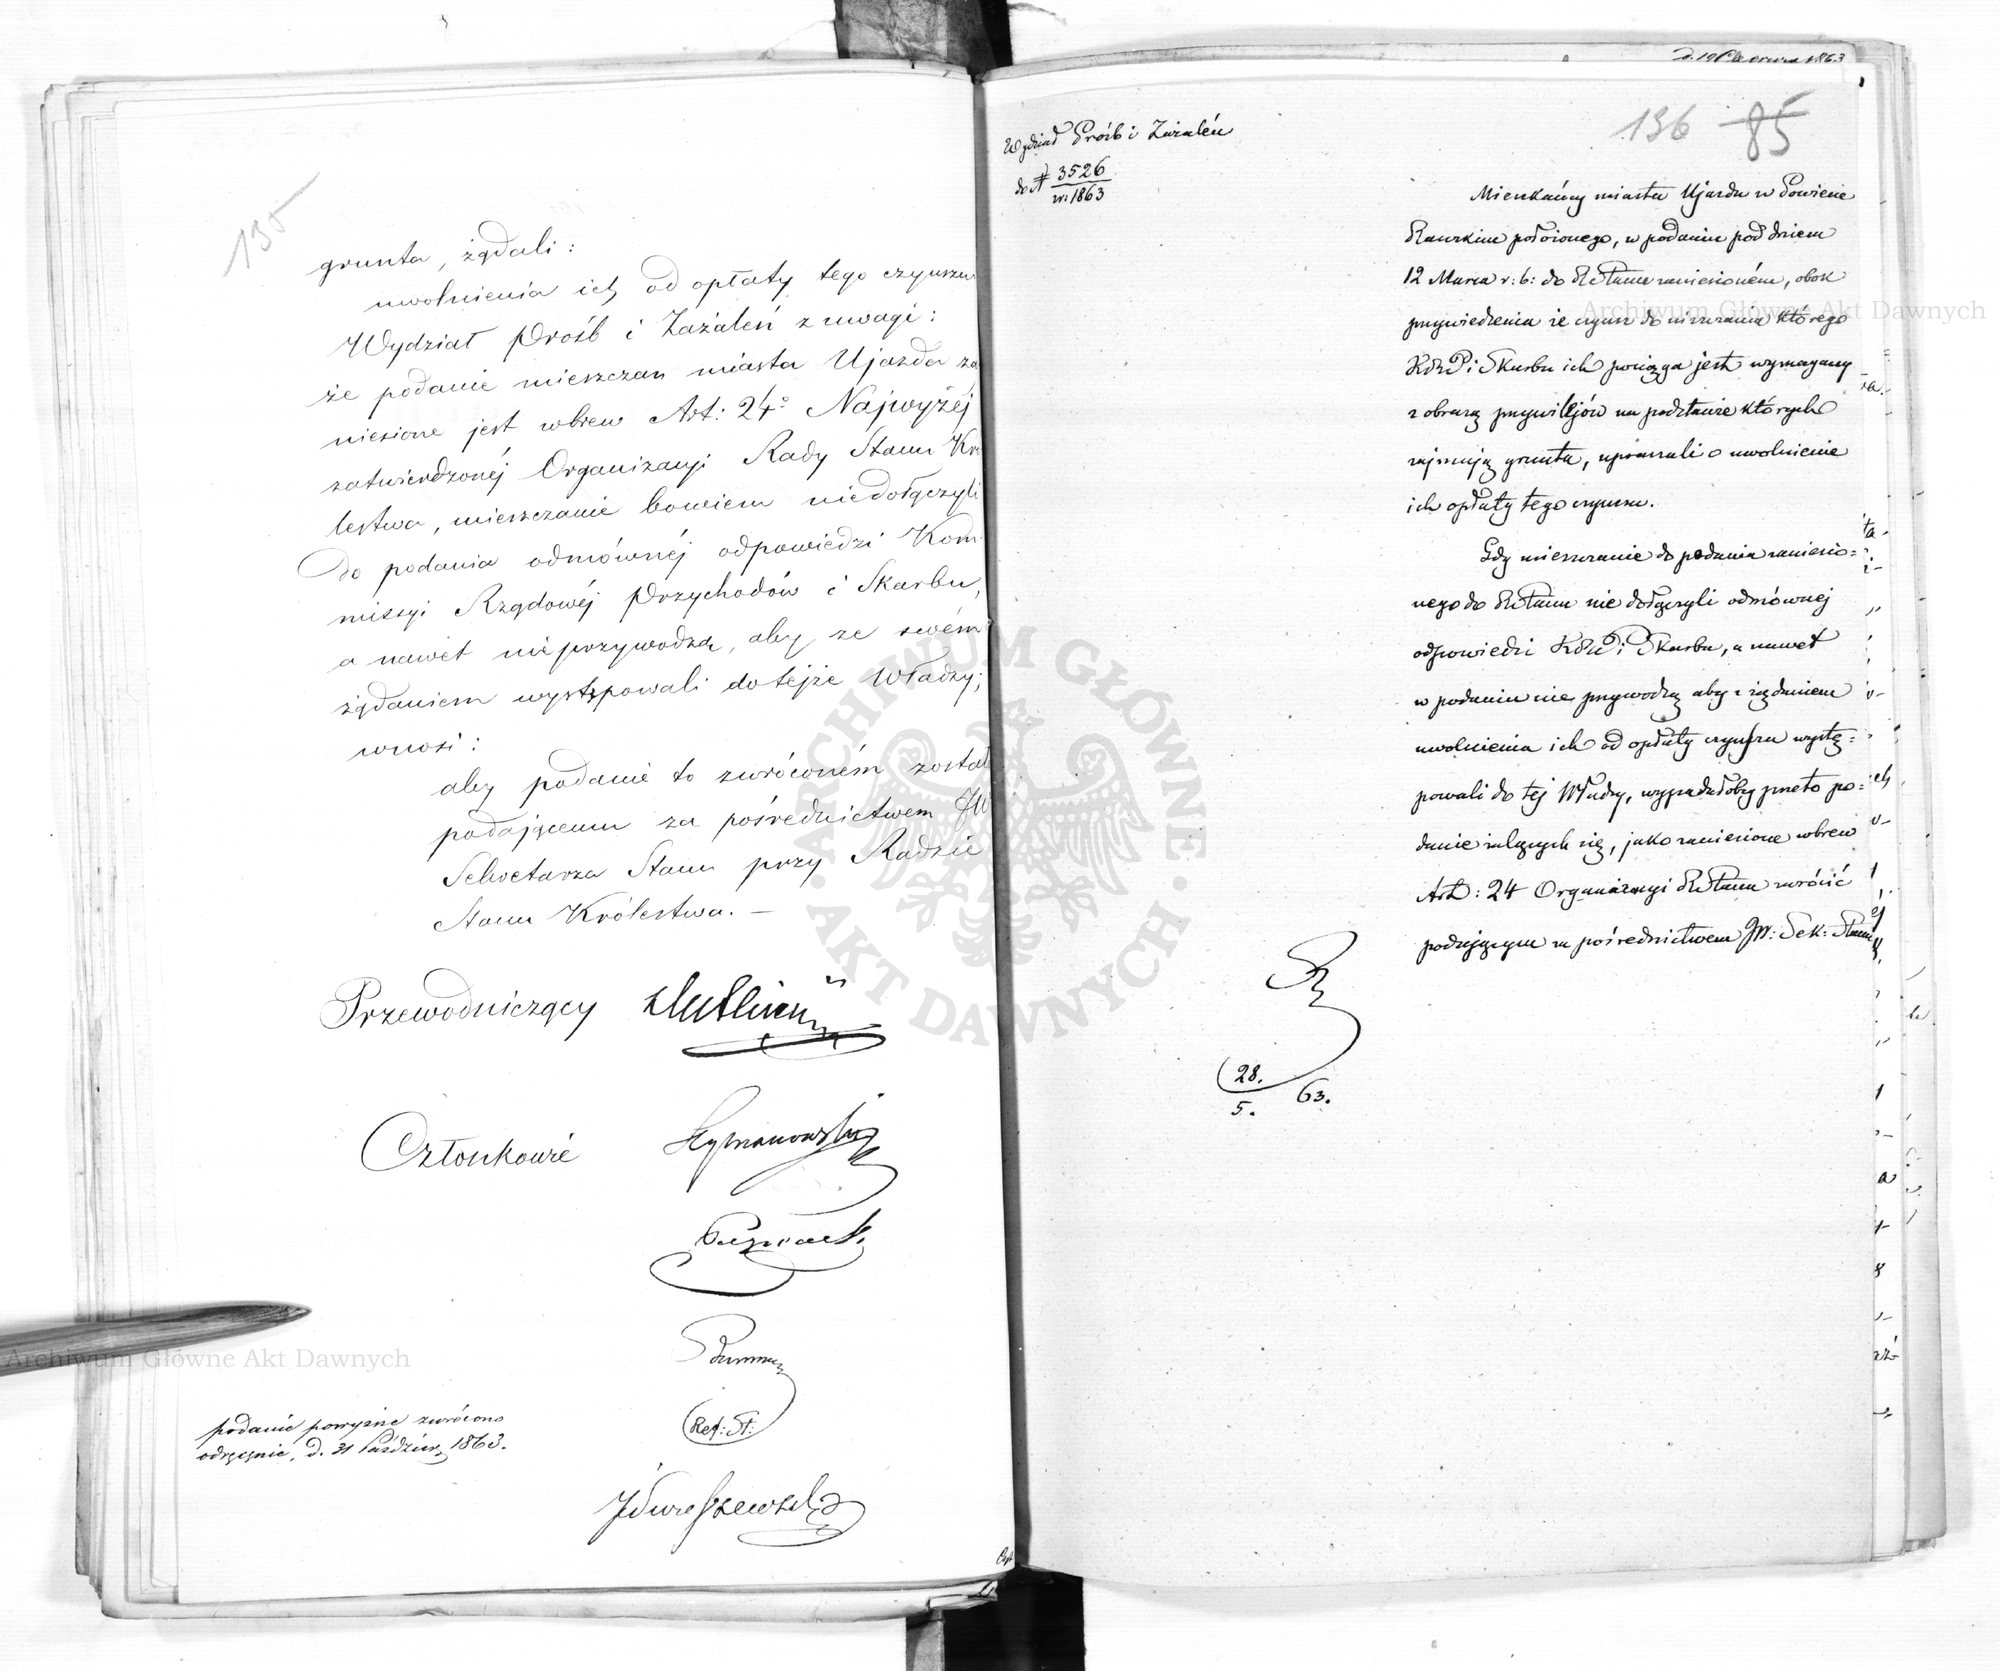 135
grunta, żądali:
uwolnienia ich od opłaty tego czynszu
Wydział Próśb i Zażaleń z uwagi:
że podanie mieszczan miasta Ujazda za
niesione jest wbrew Art: 24º Najwyżéj
zatwierdzonéj Organizacyi Rady Stanu Kró
lestwa, mieszczanie bowiem niedołączyli
do podania odmównéj odpowiedzi Kom
missyi Rządowéj Przychodów i Skarbu,
a nawet nieprzywodzą, aby ze swém
żądaniem występowali do tejże Władzy;
wnosi:
aby podanie to zwróconém został
podającemu za pośrednictwem JW
Sekretarza Stanu przy Radzie
Stanu Królestwa. —
Przewodniczący
Członkowie Szymanowski
Ref: St:
podanie powyższe zwrócono
odręcznie, d. 31 Paździer 1863.
d. 19 Czerwca 1863
136 85
Wydział Próśb i Zażaleń
do № 3526
w: 1863
Mieszkańcy miasta Ujazdu w Powiecie
Rawskim położonego, w podaniu pod dniem
12 Marca r: b: do RStanu zaniesioném, obok
przywiedzenia że czynsz do uiszczania którego
KRP i Skarbu ich pociąga jest wymagany
z obrazą przywilejów na podstawie których
zajmują grunta, upraszali o uwolnienie
ich opłaty tego czynszu.
Gdy mieszczanie do podania zaniesio=
nego do RStanu nie dołączyli odmównej
odpowiedzi KRP i Skarbu, a nawet
w podaniu nie przywodzą aby z żądaniem
uwolnienia ich od opłaty czynszu wystę=
powali do tej Władzy, wypadałoby przeto po=
danie żalących się, jako zaniesione wbrew
Art: 24 Organizacyi RStanu zwrócić
podającym za pośrednictwem JW: Sek: Stanu
28.
5. 63.
Archiwum Główne Akt Dawnych
Archiwum Główne Akt Dawnych
ARCHIWUM GŁÓWNE · AKT DAWNYCH ·